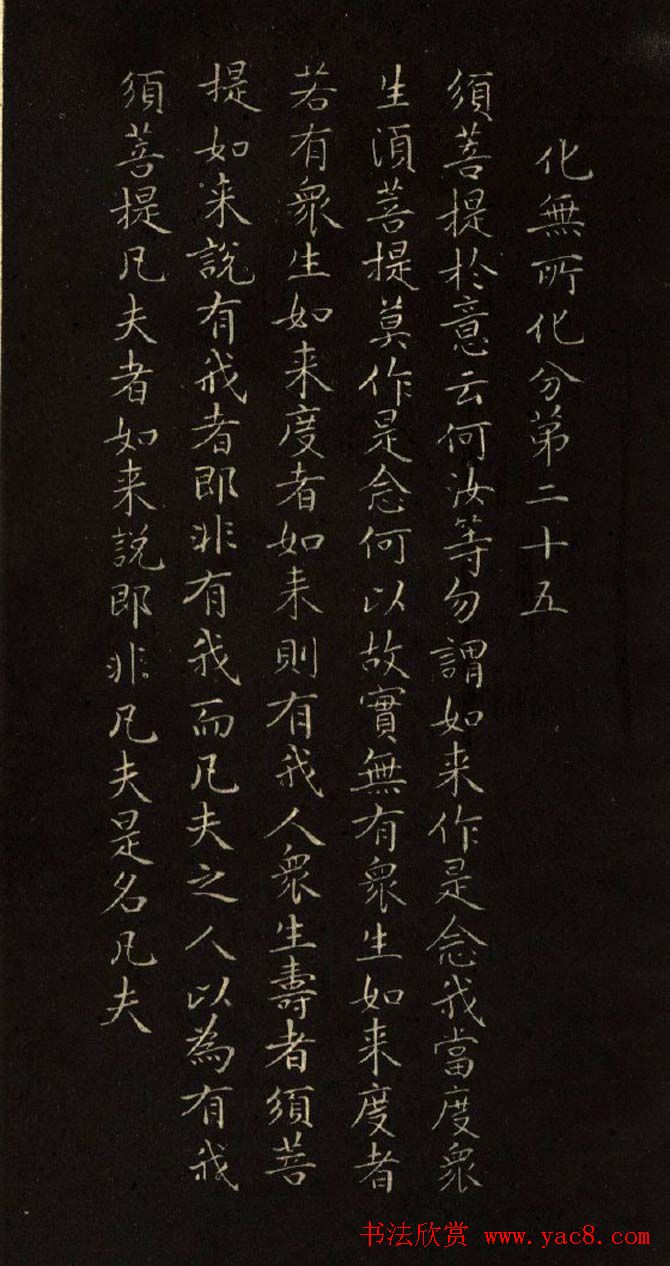 化無所化分第二十五
須菩提於意云何汝等勿謂如来作是念我當度衆
生須菩提莫作是念何以故實無有衆生如来度者
若有衆生如来度者如来則有我人衆生壽者須菩
提如来說有我者即非有我而凡夫之人以為有我
須菩提凡夫者如来說即非凡夫是名凡夫
书法欣赏 www.yac8.com